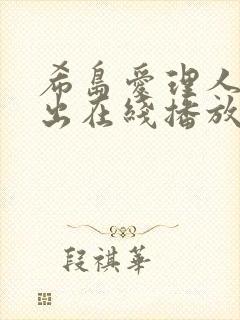 希島愛理人
出在綫播放
段祺華